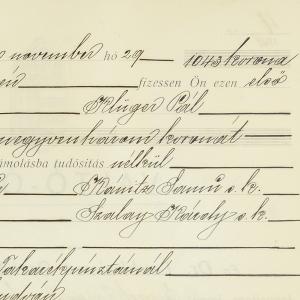 november hó 29 1043 korona
fizessen Ön ezen első
Klüger Pál
negyvenhárom koronát
számolásba tudósítás nélkül
Kánitz Samu s.k.
Szalay Károly s.k.
Takarékpénztárnál